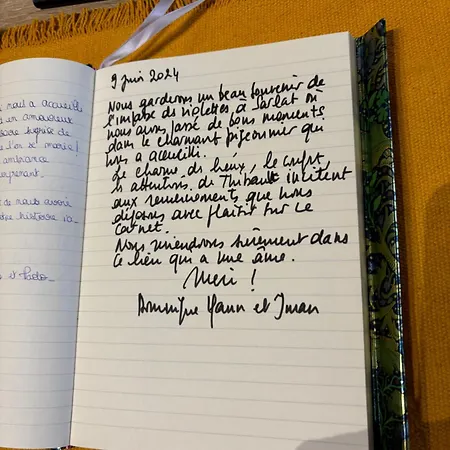 nous a accueilli
en amoureux
de
l'on se marie !
ambiance
de nous avoir
histoire
et
9 juin 2024
Nous garderons un beau souvenir de
l'impasse des violettes à Sarlat où
nous avons passé de bons moments
dans le charmant pigeonnier qui
nous a accueilli.
Le charme des lieux, le confort,
les attentions de Thibault incitent
aux remerciements que nous
déposons avec plaisir sur ce
carnet.
Nous reviendrons sûrement dans
ce lieu qui a une âme.
Merci !
Dominique Yann et Iman